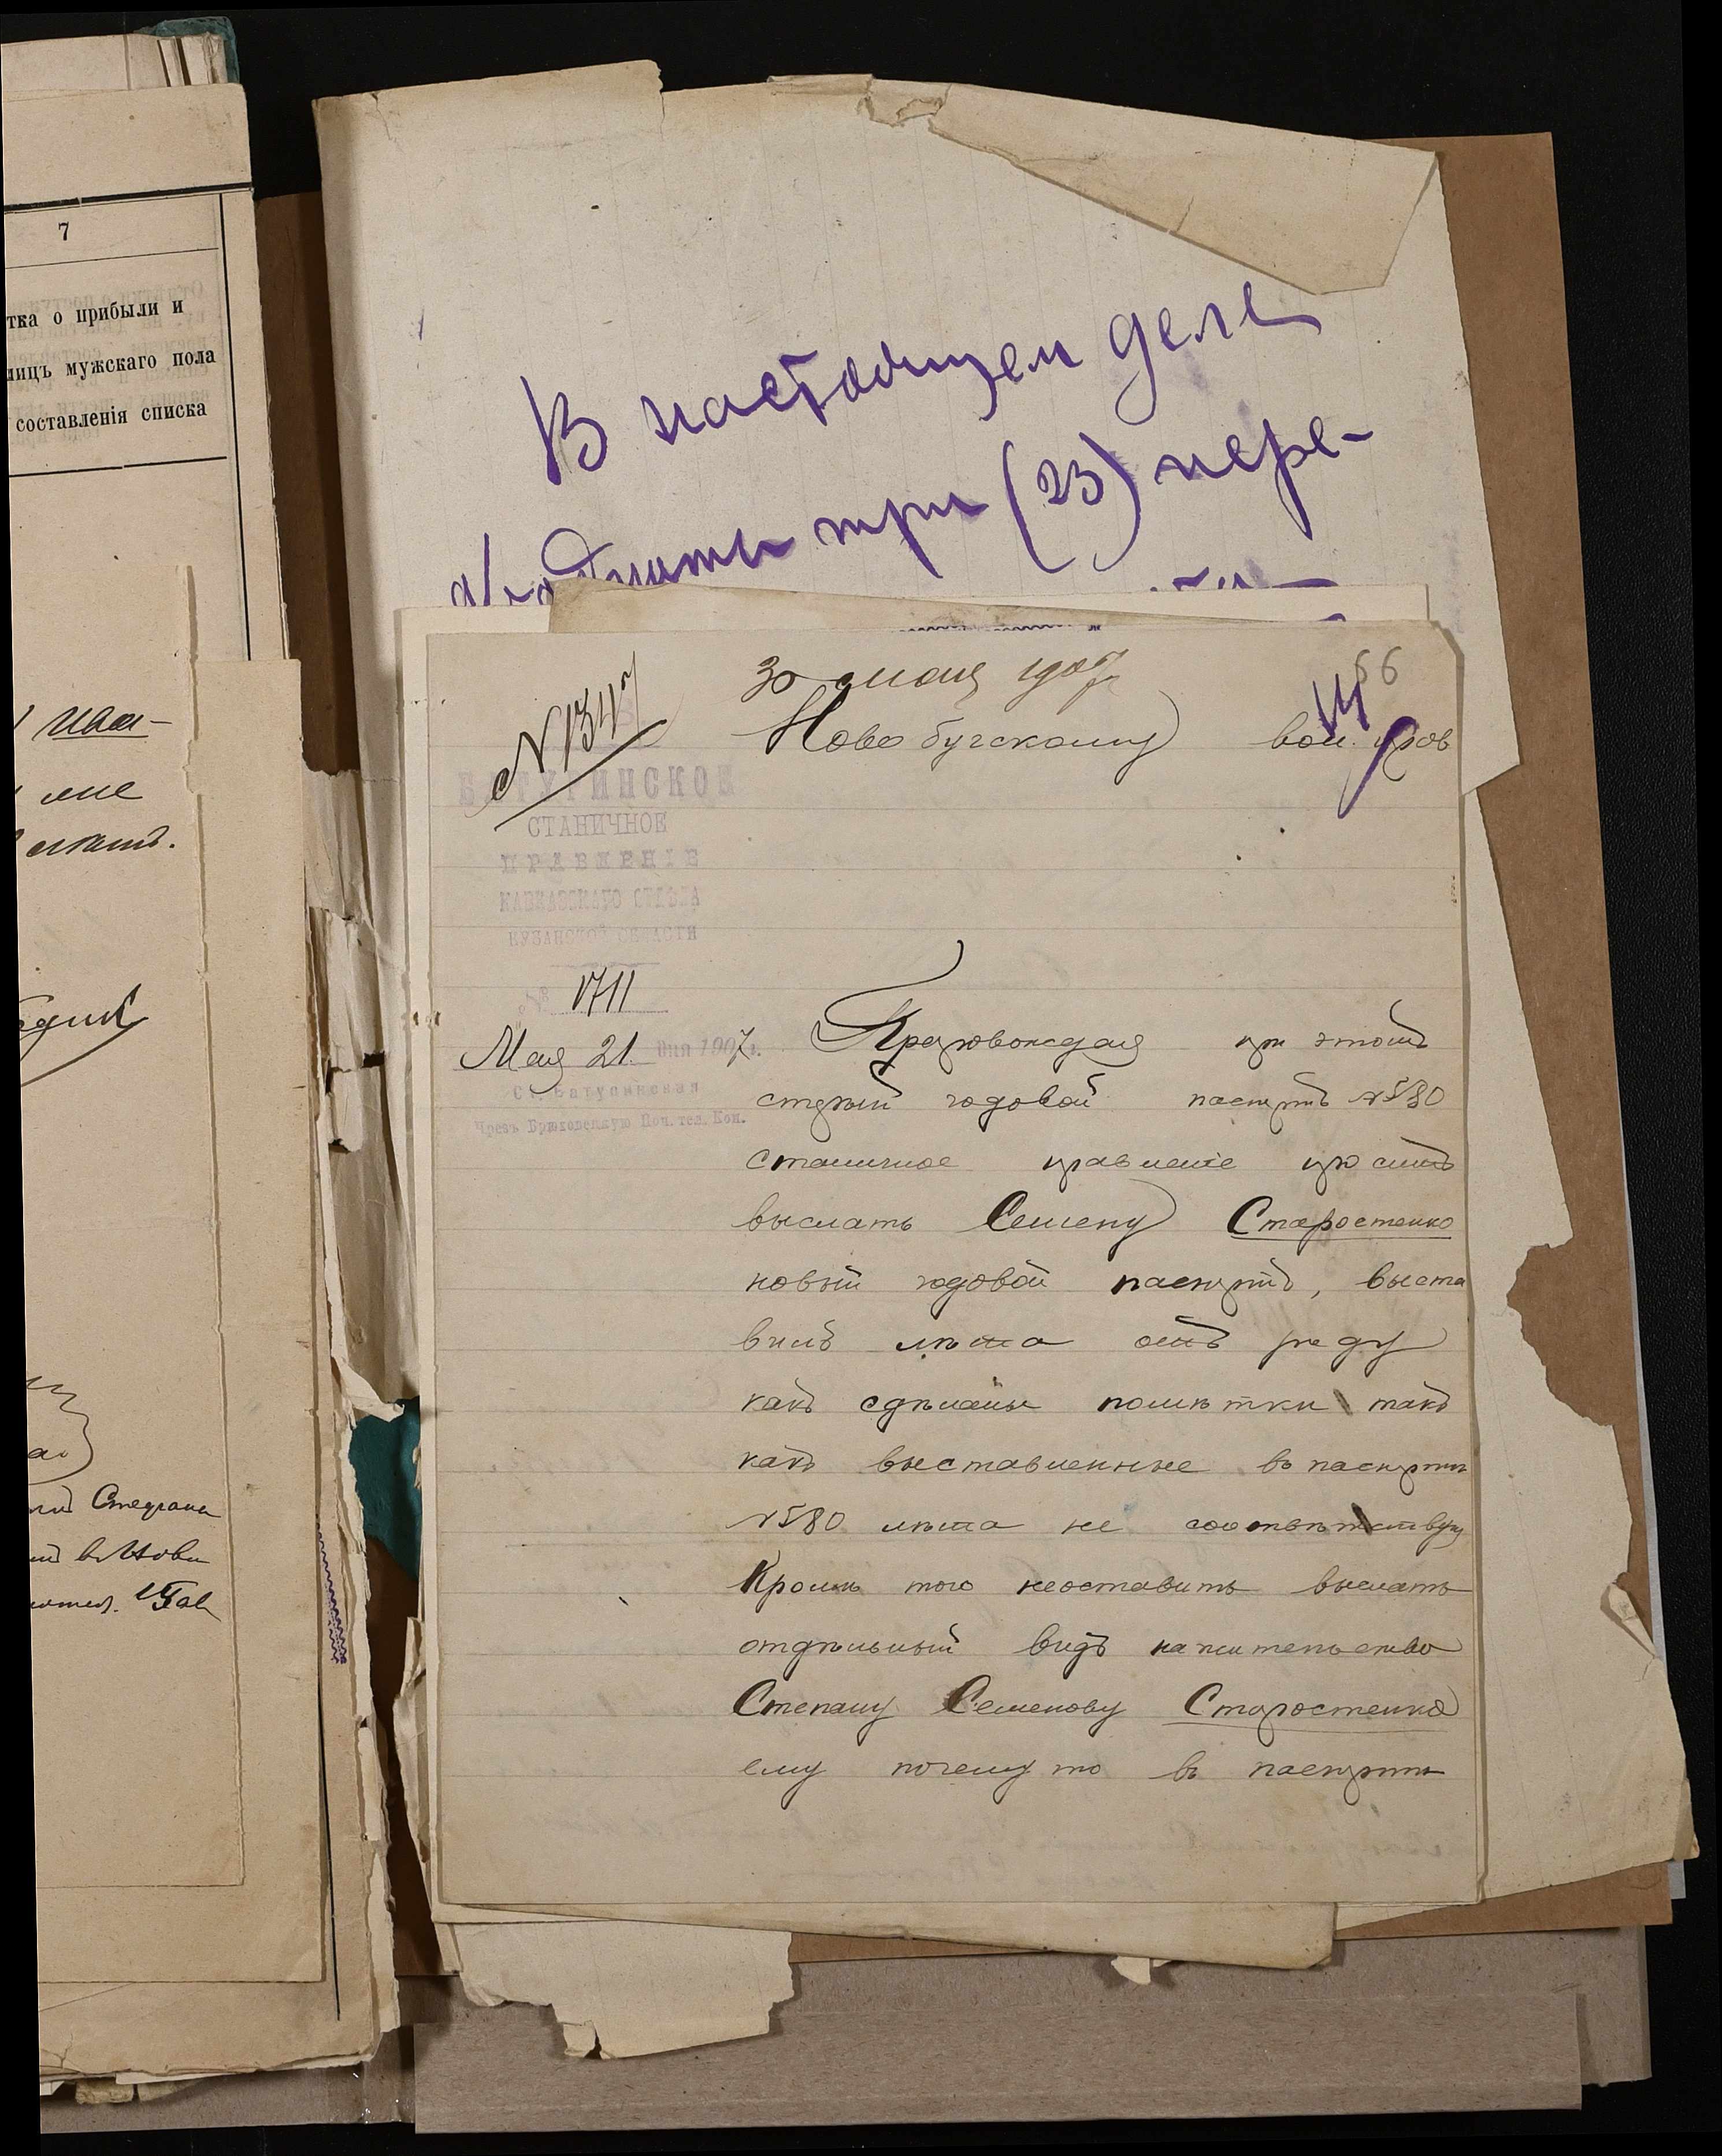 7
тка о прибыли и
лицъ мужскаго пола
составленія списка
мне
Стефана
В настоящем деле
Двадцать три (23) пере-
30 мая 1907 г.
66
№ 1347
Новобугскому вол. прав
БАТУРИНСКОЕ
СТАНИЧНОЕ
ПРАВЛЕНІЕ
КАВКАЗСКАГО ОТДѢЛА
КУБАНСКОЙ ОБЛАСТИ
№ 1711
Мая 21 дня 1907 г.
Ст. Батуринская
Чрезъ Брюховецкую Поч. тел. Кон.
Препровождая при этомъ
старый годовой паспортъ № 580
станичное правленіе проситъ
выслать Семену Старостенко
новый годовой паспортъ, выста
вивъ лѣта отъ роду
какъ сдѣланы помѣтки такъ
какъ выставленные въ паспортѣ
№ 580 лѣта не соотвѣтствую
Кромѣ того неоставить выслать
отдѣльный видъ на жительство
Степану Семенову Старостенко
ему почему то въ паспортѣ